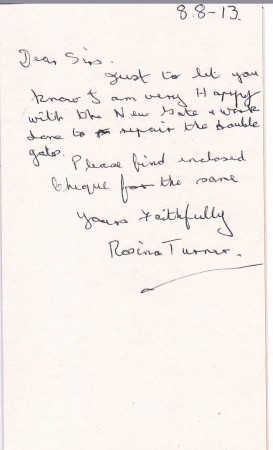 8.8-13.
Dear Sirs.
Just to let you
know I am very Happy
with the New Gate & work
done to repair the double
gates.
Please find enclosed
Cheque for the same
Yours Faithfully
Rosina Turner.